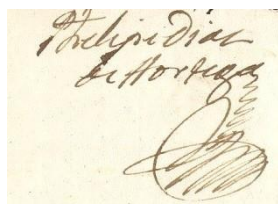 Phelipe Diaz
de Hortega